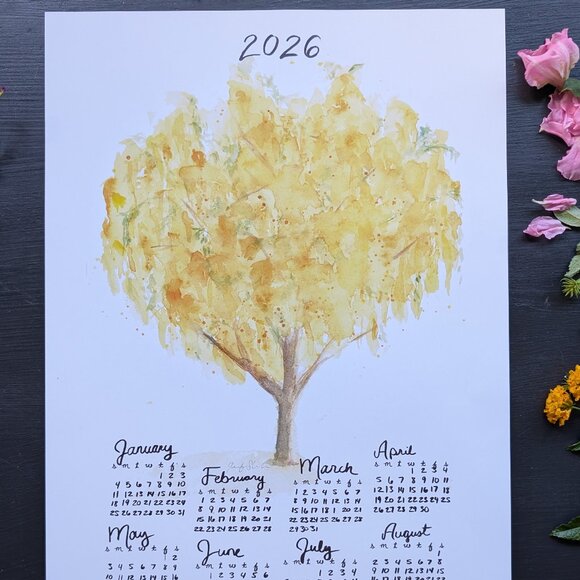 2026
January
s m t w t f s
1 2 3
4 5 6 7 8 9 10
11 12 13 14 15 16 17
18 19 20 21 22 23 24
25 26 27 28 29 30 31
February
s m t w t f s
1 2 3 4 5 6 7
8 9 10 11 12 13 14
15 16 17 18 19 20 21
22 23 24 25 26 27 28
March
s m t w t f s
1 2 3 4 5 6 7
8 9 10 11 12 13 14
15 16 17 18 19 20 21
22 23 24 25 26 27 28
29 30 31
April
s m t w t f s
1 2 3 4
5 6 7 8 9 10 11
12 13 14 15 16 17 18
19 20 21 22 23 24 25
26 27 28 29 30
May
s m t w t f s
1 2
3 4 5 6 7 8 9
10 11 12 13 14 15 16
June
s m t w t f s
1 2 3 4 5 6
July
s m t w t f s
1 2 3 4
August
s m t w t f s
1
2 3 4 5 6 7 8
9 10 11 12 13 14 15